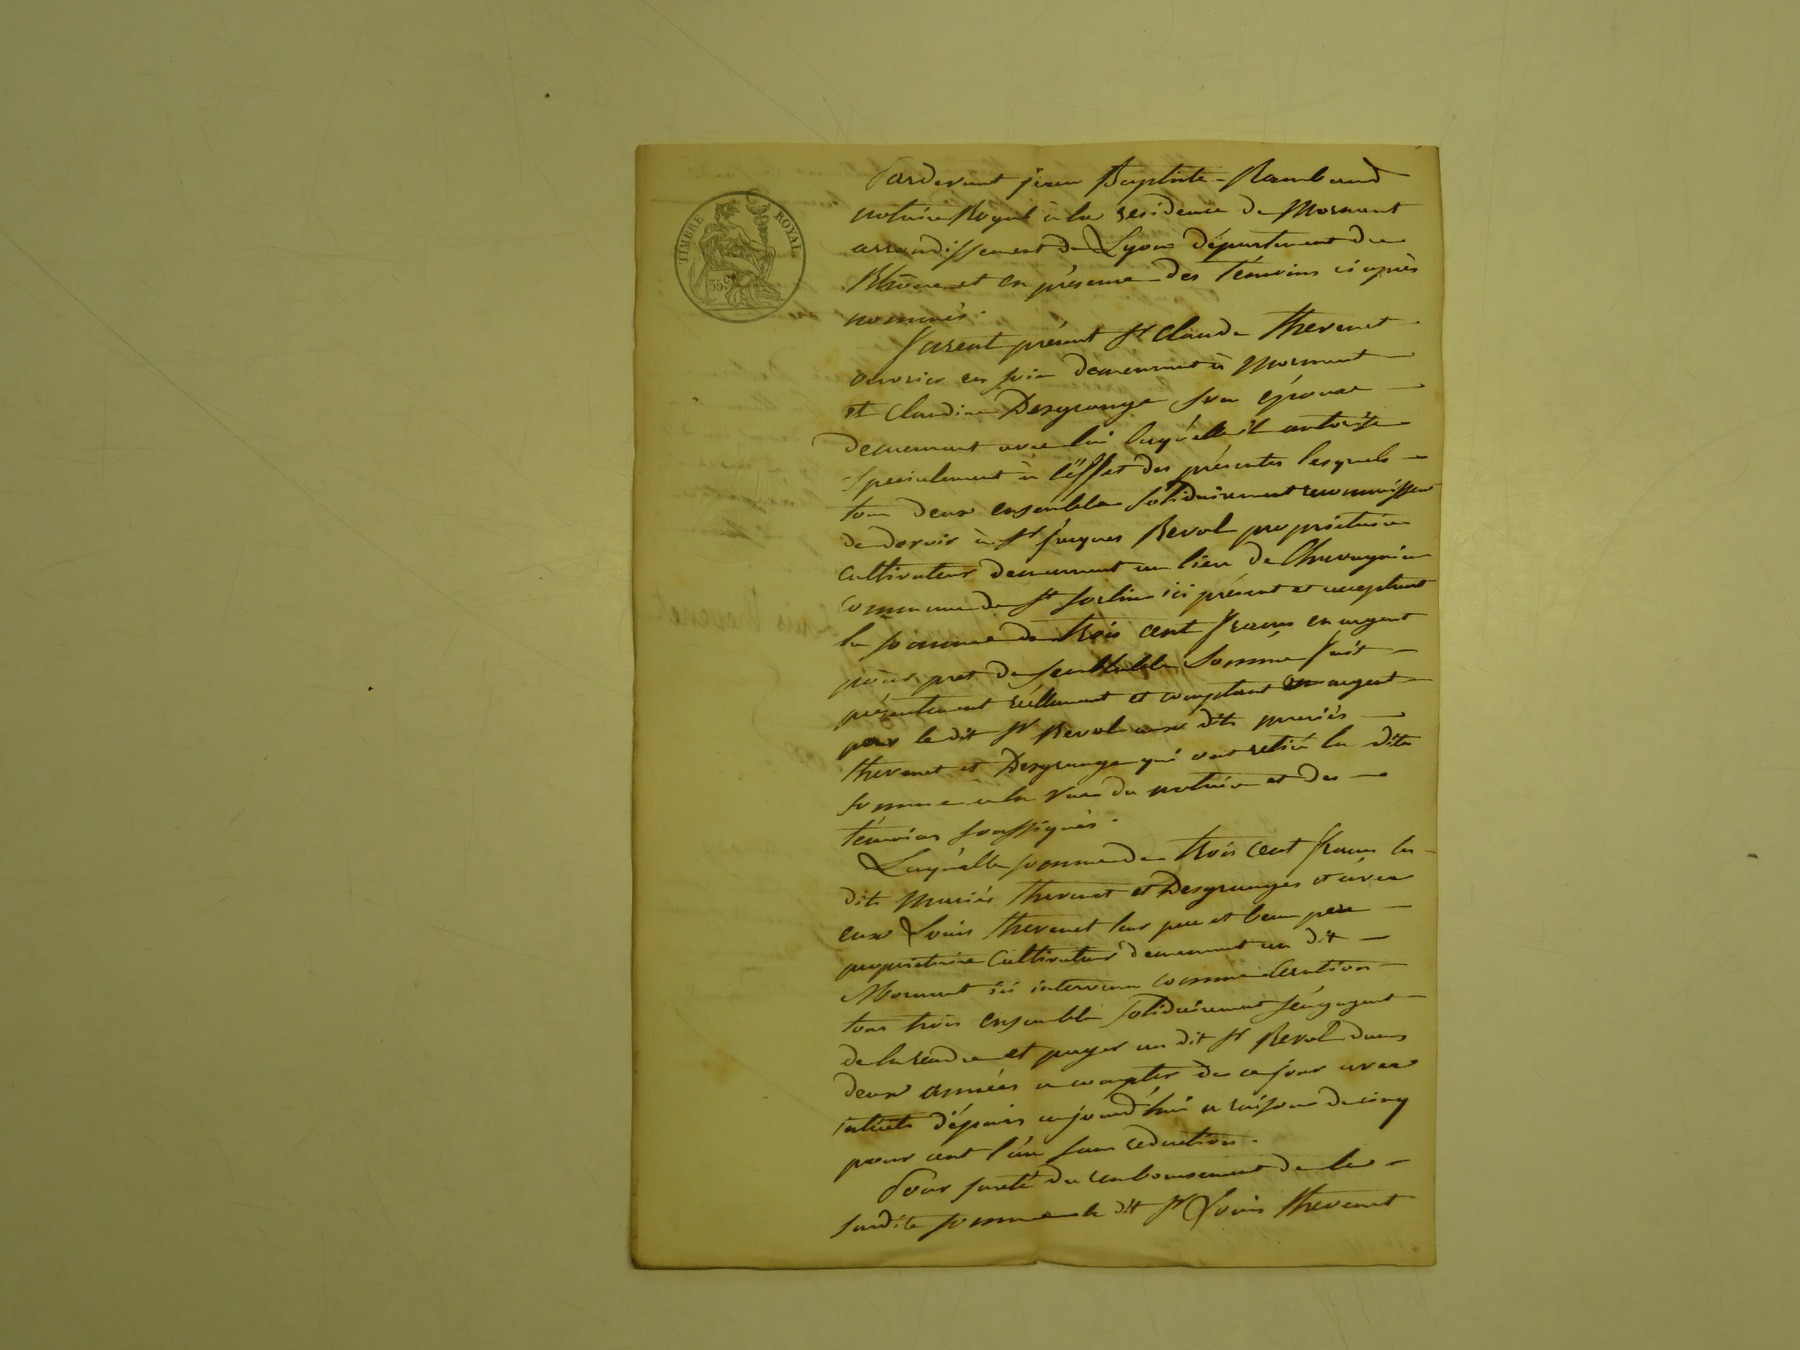 TIMBRE ROYAL
35 c
Pardevant jean Baptiste Rambaud
notaire Royal à la residence de Mornant
arrondissement de Lyon département du
Rhône et en présence des témoins ci après
nommés.
Furent présent Sr Claude thevenet
ouvrier en soie demeurant à Mornant
et Claudine Desgrange son épouse
demeurant avec lui laqu'elle il autorise
specialement à l'éffet des présentes lesquels
tous deux ensemble solidairement reconnaissent
de devoir à Sr jacques Revol propriétaire
cultivateur demeurant au lieu de
commune de St Sorlin ici présent et acceptant
la somme de trois cent francs en argent
pour pret de semblable somme fait
présentement réellement et comptant en argent
par le dit Sr Revol aux dits mariés
thevenet et Desgrange qui ont retiré la dite
somme à la vue du notaire et des
témoins soussignés.
Laqu'elle somme de trois cent francs les
dits mariés thevenet et Desgranges et avec
eux Louis thevenet leur pere et beau pere
propriétaire cultivateur demeurant au dit
Mornant ici intervenu comme caution
tous trois ensemble solidairement s'engagent
de la rendre et payer au dit Sr Revol dans
deux années a compter de ce jour avec
intérêts dépuis aujourd'hui a raison de cinq
pour cent l'an sans reduction.
Pour sureté du remboursement de la
susdite somme le dit Sr Louis thevenet